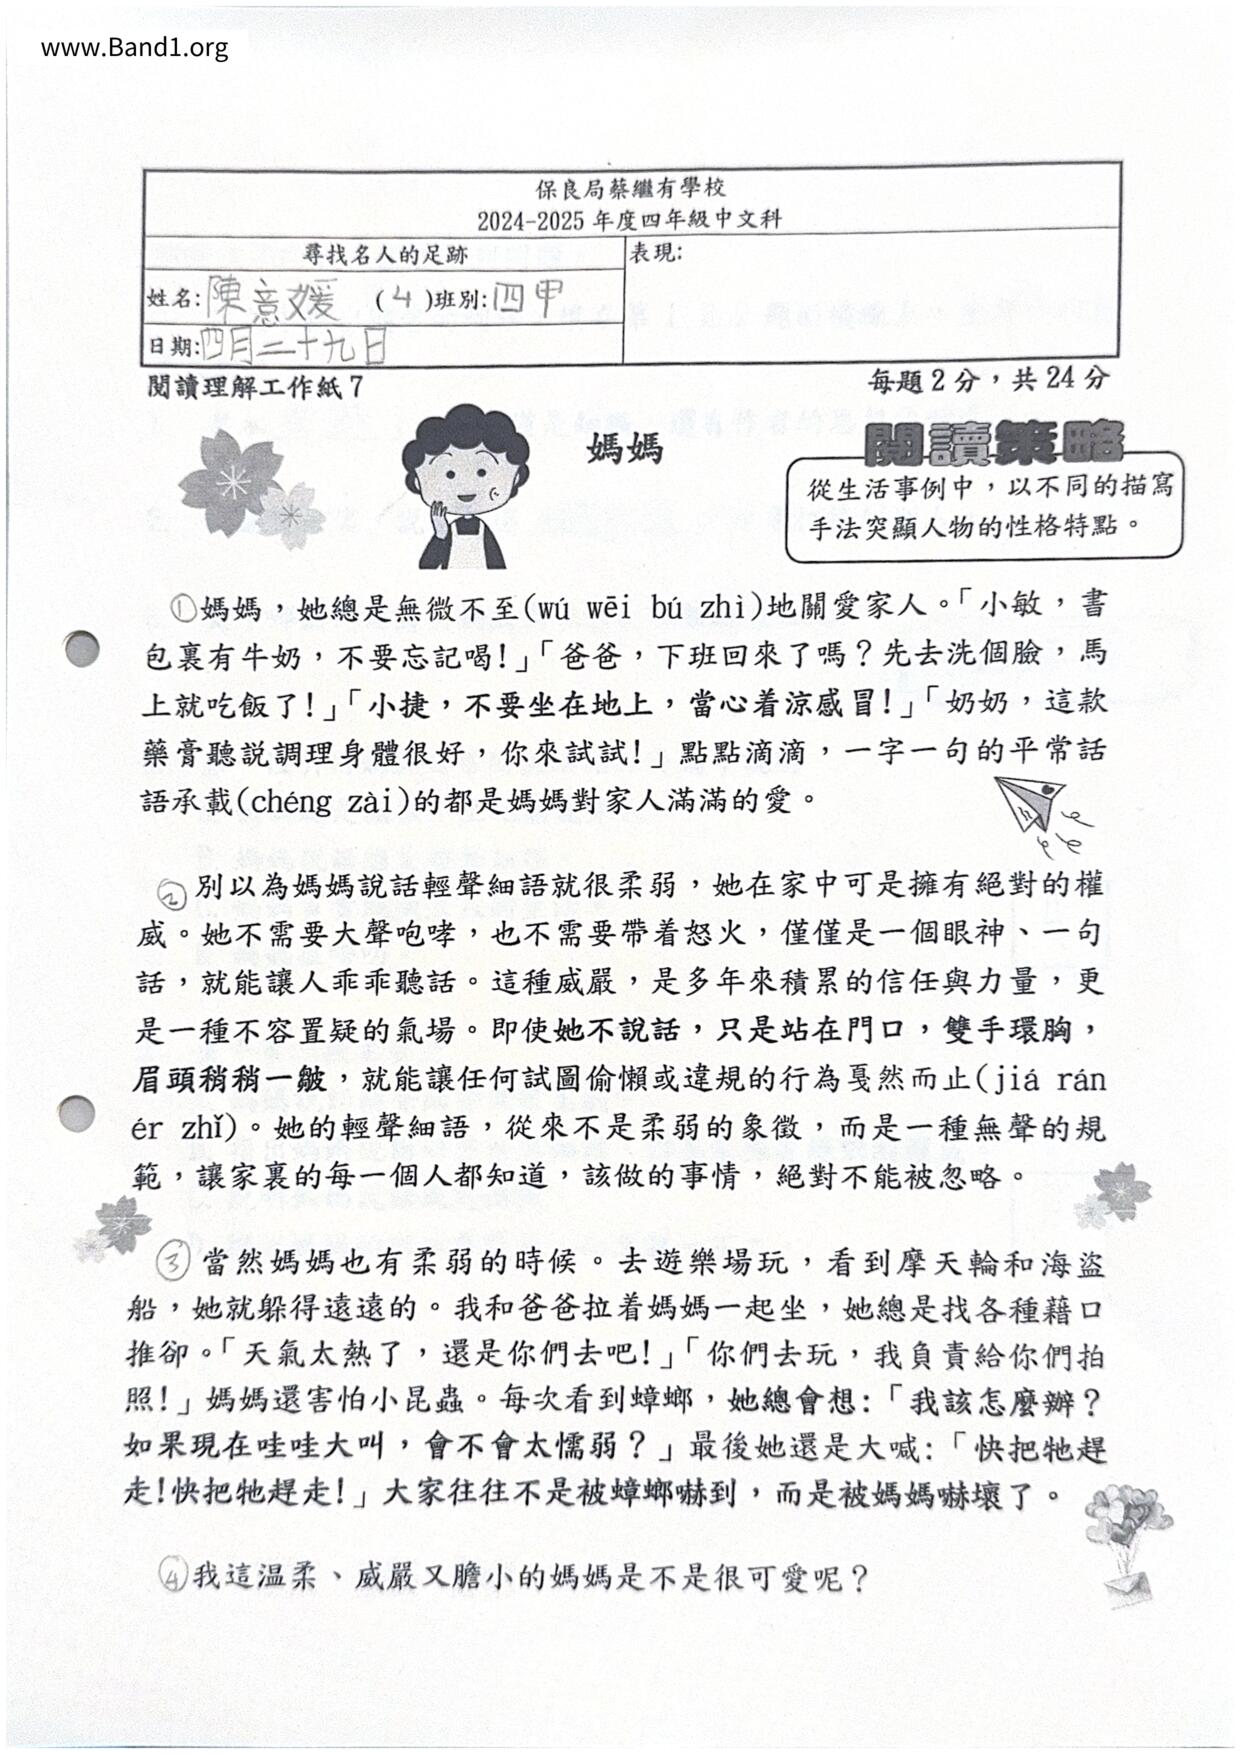 www.Band1.org
保良局蔡繼有學校
2024-2025 年度四年級中文科
尋找名人的足跡
表現:
姓名:陳意媛 (4)班別:四甲
日期:四月二十九日
閱讀理解工作紙 7
每題 2 分，共 24 分
媽媽
閱讀策略
從生活事例中，以不同的描寫
手法突顯人物的性格特點。
①媽媽，她總是無微不至(wú wēi bú zhì)地關愛家人。「小敏，書
包裏有牛奶，不要忘記喝!」「爸爸，下班回來了嗎？先去洗個臉，馬
上就吃飯了!」「小捷，不要坐在地上，當心着涼感冒!」「奶奶，這款
藥膏聽説調理身體很好，你來試試!」點點滴滴，一字一句的平常話
語承載(chéng zài)的都是媽媽對家人滿滿的愛。
②別以為媽媽說話輕聲細語就很柔弱，她在家中可是擁有絕對的權
威。她不需要大聲咆哮，也不需要帶着怒火，僅僅是一個眼神、一句
話，就能讓人乖乖聽話。這種威嚴，是多年來積累的信任與力量，更
是一種不容置疑的氣場。即使她不說話，只是站在門口，雙手環胸，
眉頭稍稍一皺，就能讓任何試圖偷懶或違規的行為戛然而止(jiá rán
ér zhǐ)。她的輕聲細語，從來不是柔弱的象徵，而是一種無聲的規
範，讓家裏的每一個人都知道，該做的事情，絕對不能被忽略。
③當然媽媽也有柔弱的時候。去遊樂場玩，看到摩天輪和海盜
船，她就躲得遠遠的。我和爸爸拉着媽媽一起坐，她總是找各種藉口
推卻。「天氣太熱了，還是你們去吧!」「你們去玩，我負責給你們拍
照!」媽媽還害怕小昆蟲。每次看到蟑螂，她總會想:「我該怎麼辦？
如果現在哇哇大叫，會不會太懦弱？」最後她還是大喊:「快把牠趕
走!快把牠趕走!」大家往往不是被蟑螂嚇到，而是被媽媽嚇壞了。
④我這温柔、威嚴又膽小的媽媽是不是很可愛呢？